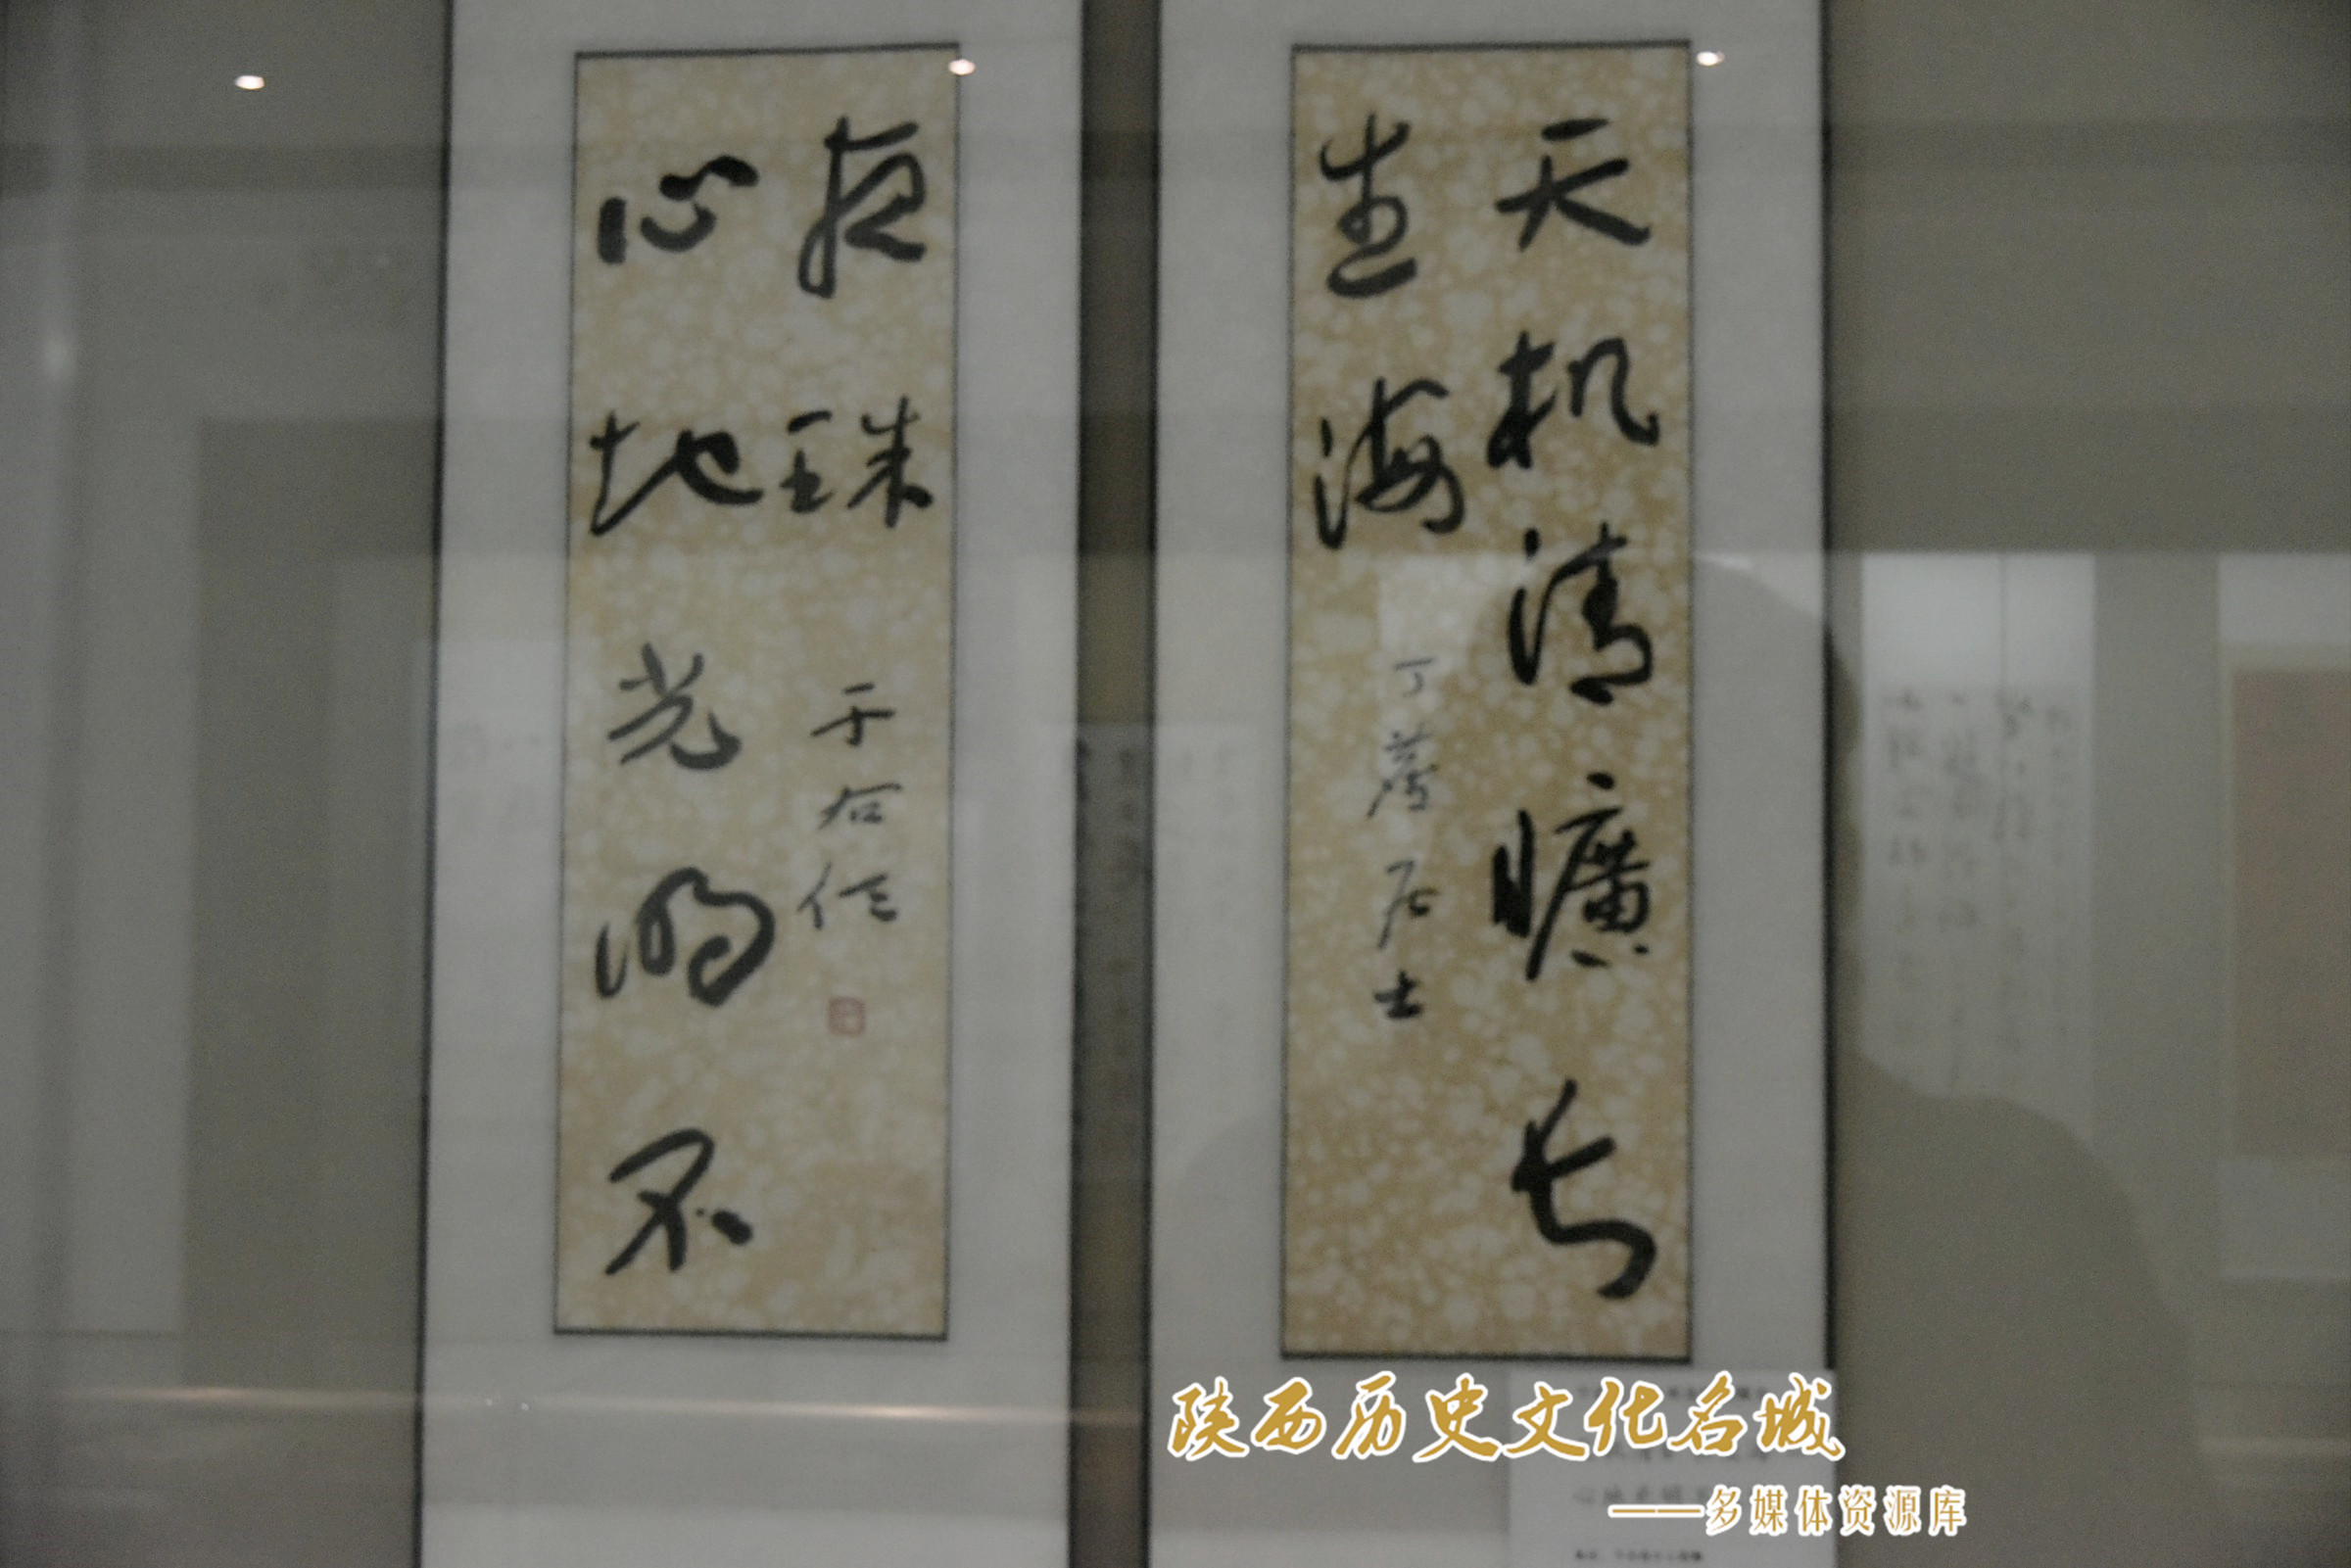 天机清曠長
生海
丁居士
心地光明不
夜珠
于右任
陕西历史文化名城
——多媒体资源库